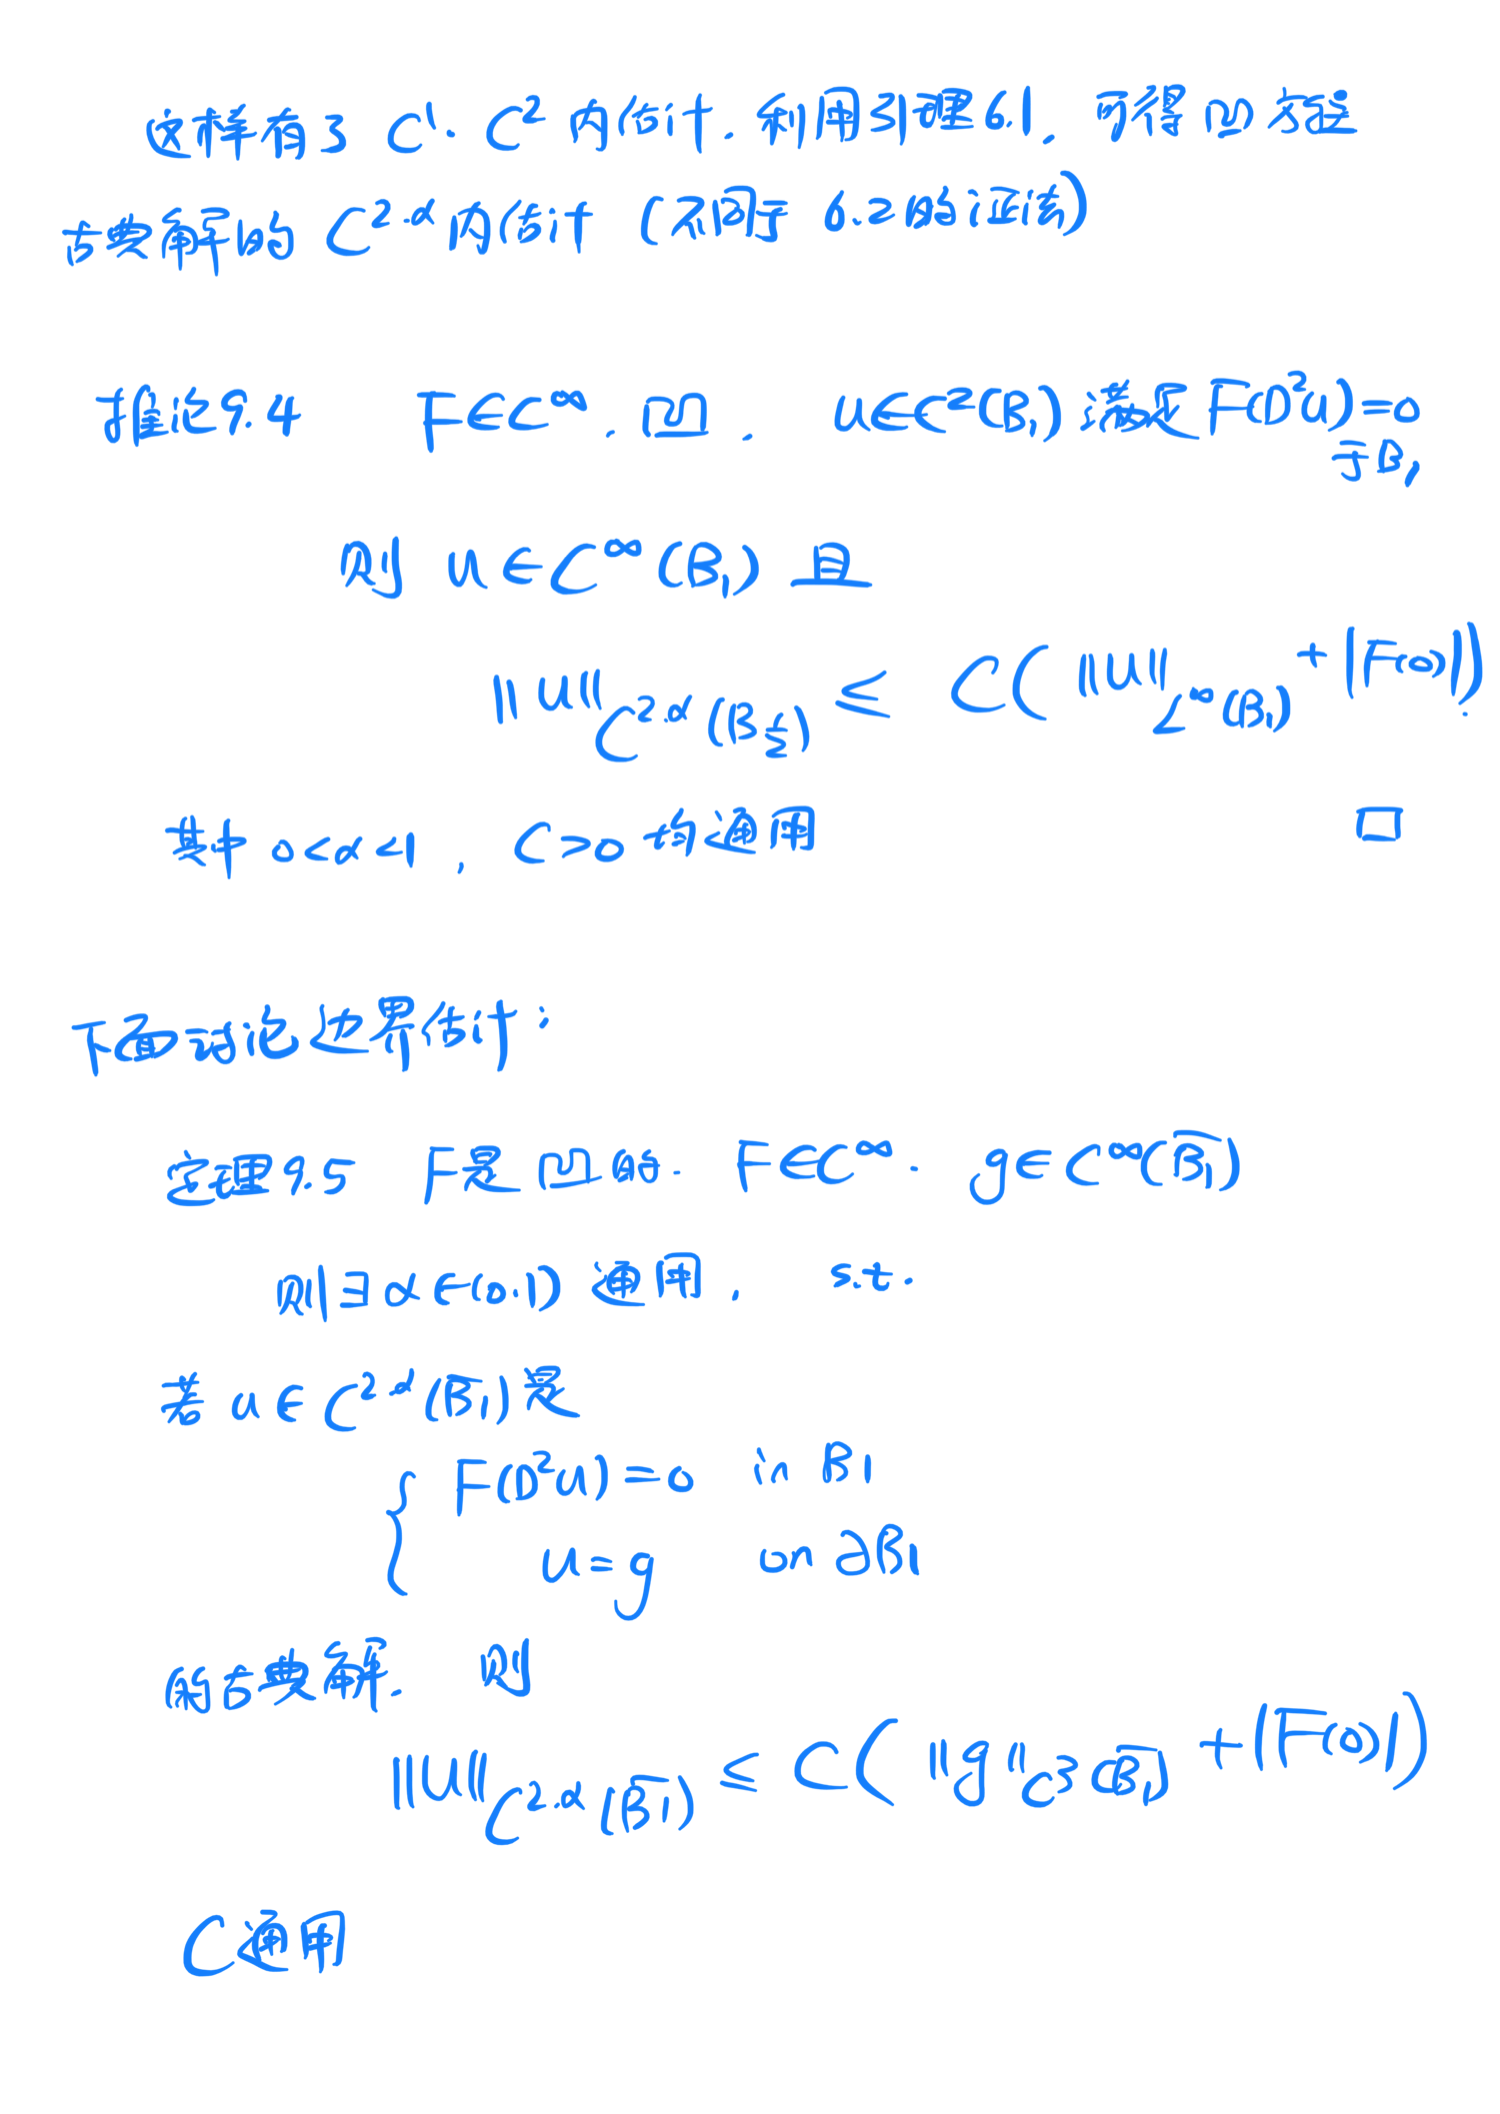 这样有了 C¹、C² 内估计. 利用引理6.1, 可得凹方程
古典解的 C^{2.α} 内估计 (不同于 6.2的证法)
推论9.4 F∈C^∞. 凹. u∈C²(B₁) 满足 F(D²u)=0
于B₁
则 u∈C^∞(B₁) 且
‖u‖_{C^{2.α}(B_{1/2})} ≤ C(‖u‖_{L^∞(B₁)} + |F(0)|).
其中 0<α<1, C>0 均通用 □
下面讨论边界估计:
定理9.5 F是凹的. F∈C^∞. g∈C^∞(\overline{B₁})
则∃α∈(0.1) 通用, s.t.
若 u∈C^{2.α}(\overline{B₁})是
{ F(D²u)=0 in B₁
u=g on ∂B₁
的古典解. 则
‖u‖_{C^{2.α}(\overline{B₁})} ≤ C(‖g‖_{C³(\overline{B₁})} + |F(0)|)
C通用